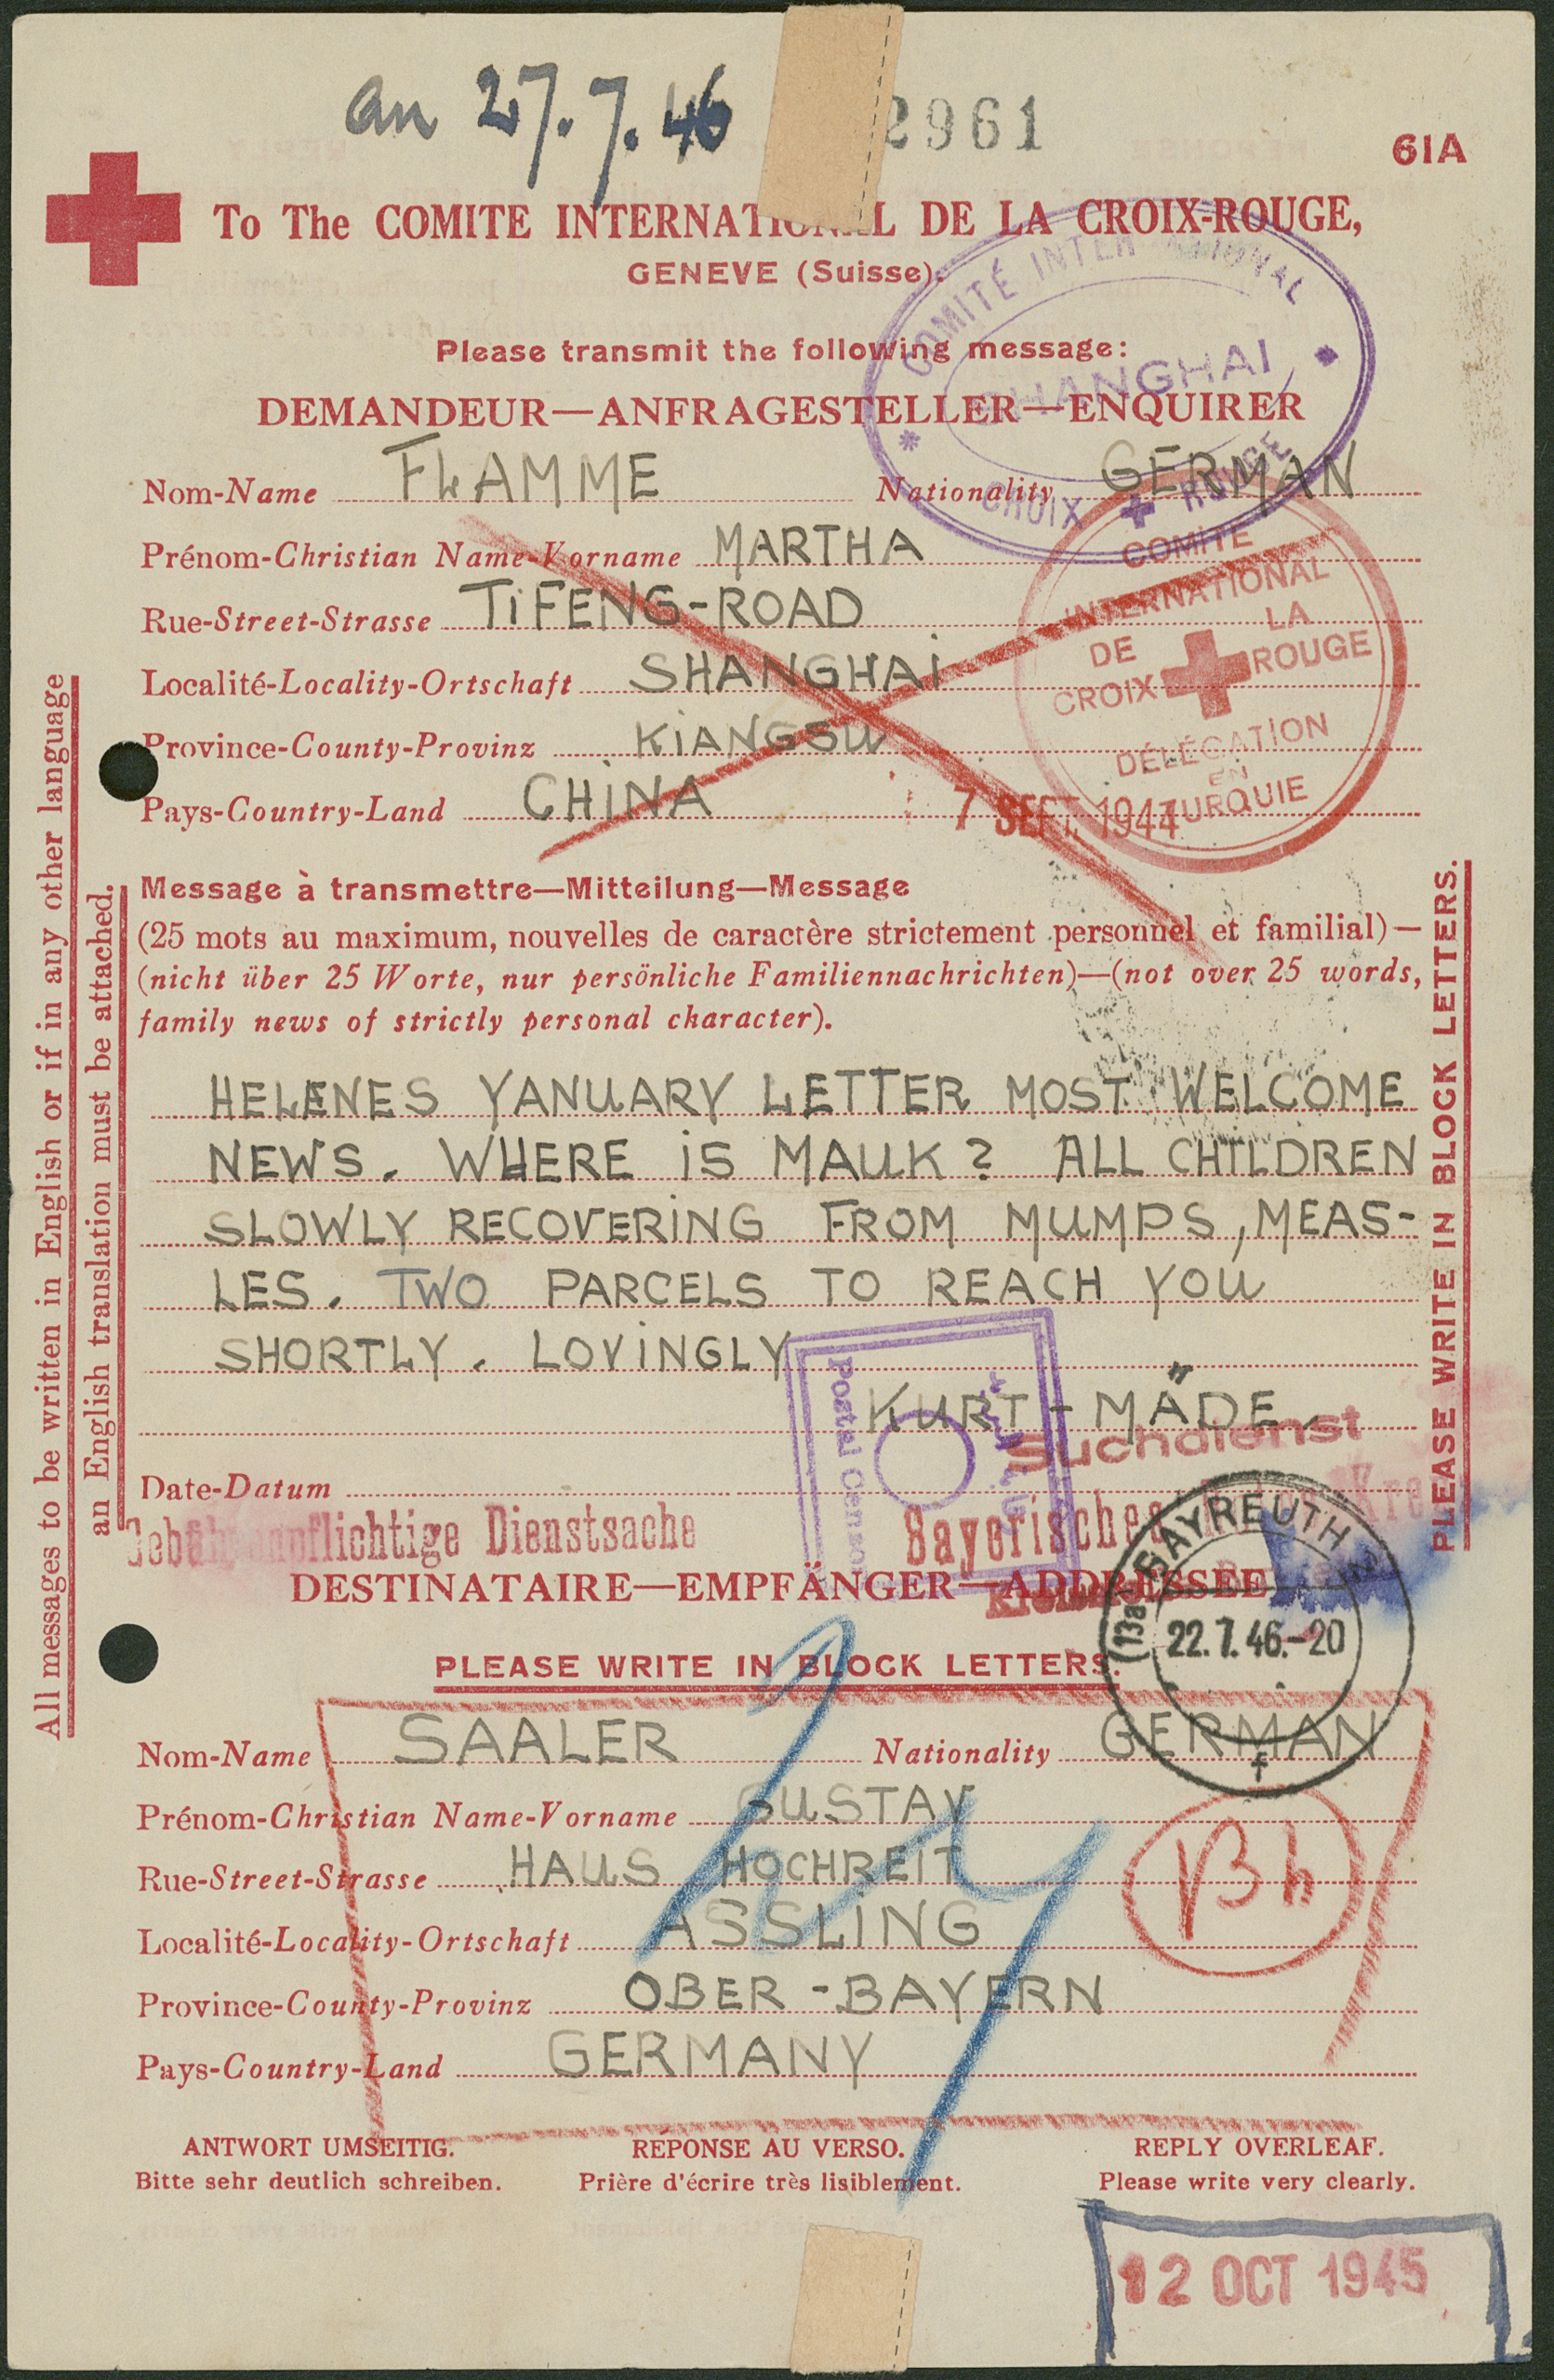 an 27.7.46
2961
61A
To The COMITE INTERNATIONAL DE LA CROIX-ROUGE,
GENEVE (Suisse).
COMITÉ INTERNATIONAL
SHANGHAI
CROIX ROUGE
Please transmit the following message:
DEMANDEUR—ANFRAGESTELLER—ENQUIRER
Nom-Name FLAMME Nationality GERMAN
Prénom-Christian Name-Vorname MARTHA
Rue-Street-Strasse TiFENG-ROAD
Localité-Locality-Ortschaft SHANGHAi
Province-County-Provinz KiANGSU
Pays-Country-Land CHiNA
COMITÉ
INTERNATIONAL
DE LA
CROIX ROUGE
DÉLÉGATION
EN
TURQUIE
7 SEPT. 1944
Message à transmettre—Mitteilung—Message
(25 mots au maximum, nouvelles de caractère strictement personnel et familial)—
(nicht über 25 Worte, nur persönliche Familiennachrichten)—(not over 25 words,
family news of strictly personal character).
HELENES YANUARY LETTER MOST WELCOME
NEWS. WHERE iS MAUK? ALL CHILDREN
SLOWLY RECOVERiNG FROM MUMPS, MEAS-
LES. TWO PARCELS TO REACH YOU
SHORTLY. LOViNGLY
KURT - MÄDE.
Postal Censor
Suchdienst
Date-Datum
Gebührenpflichtige Dienstsache
Bayerisches Rotes Kreuz
DESTINATAIRE—EMPFÄNGER—ADDRESSEE
PLEASE WRITE IN BLOCK LETTERS.
(13a) BAYREUTH 2
22.7.46.-20
f
Nom-Name SAALER Nationality GERMAN
Prénom-Christian Name-Vorname GUSTAV
Rue-Street-Strasse HAUS HOCHREIT
Localité-Locality-Ortschaft ASSLiNG
Province-County-Provinz OBER-BAYERN
Pays-Country-Land GERMANY
ANTWORT UMSEITIG. RÉPONSE AU VERSO. REPLY OVERLEAF.
Bitte sehr deutlich schreiben. Prière d'écrire très lisiblement. Please write very clearly.
12 OCT 1945
All messages to be written in English or if in any other language
an English translation must be attached.
PLEASE WRITE IN BLOCK LETTERS.